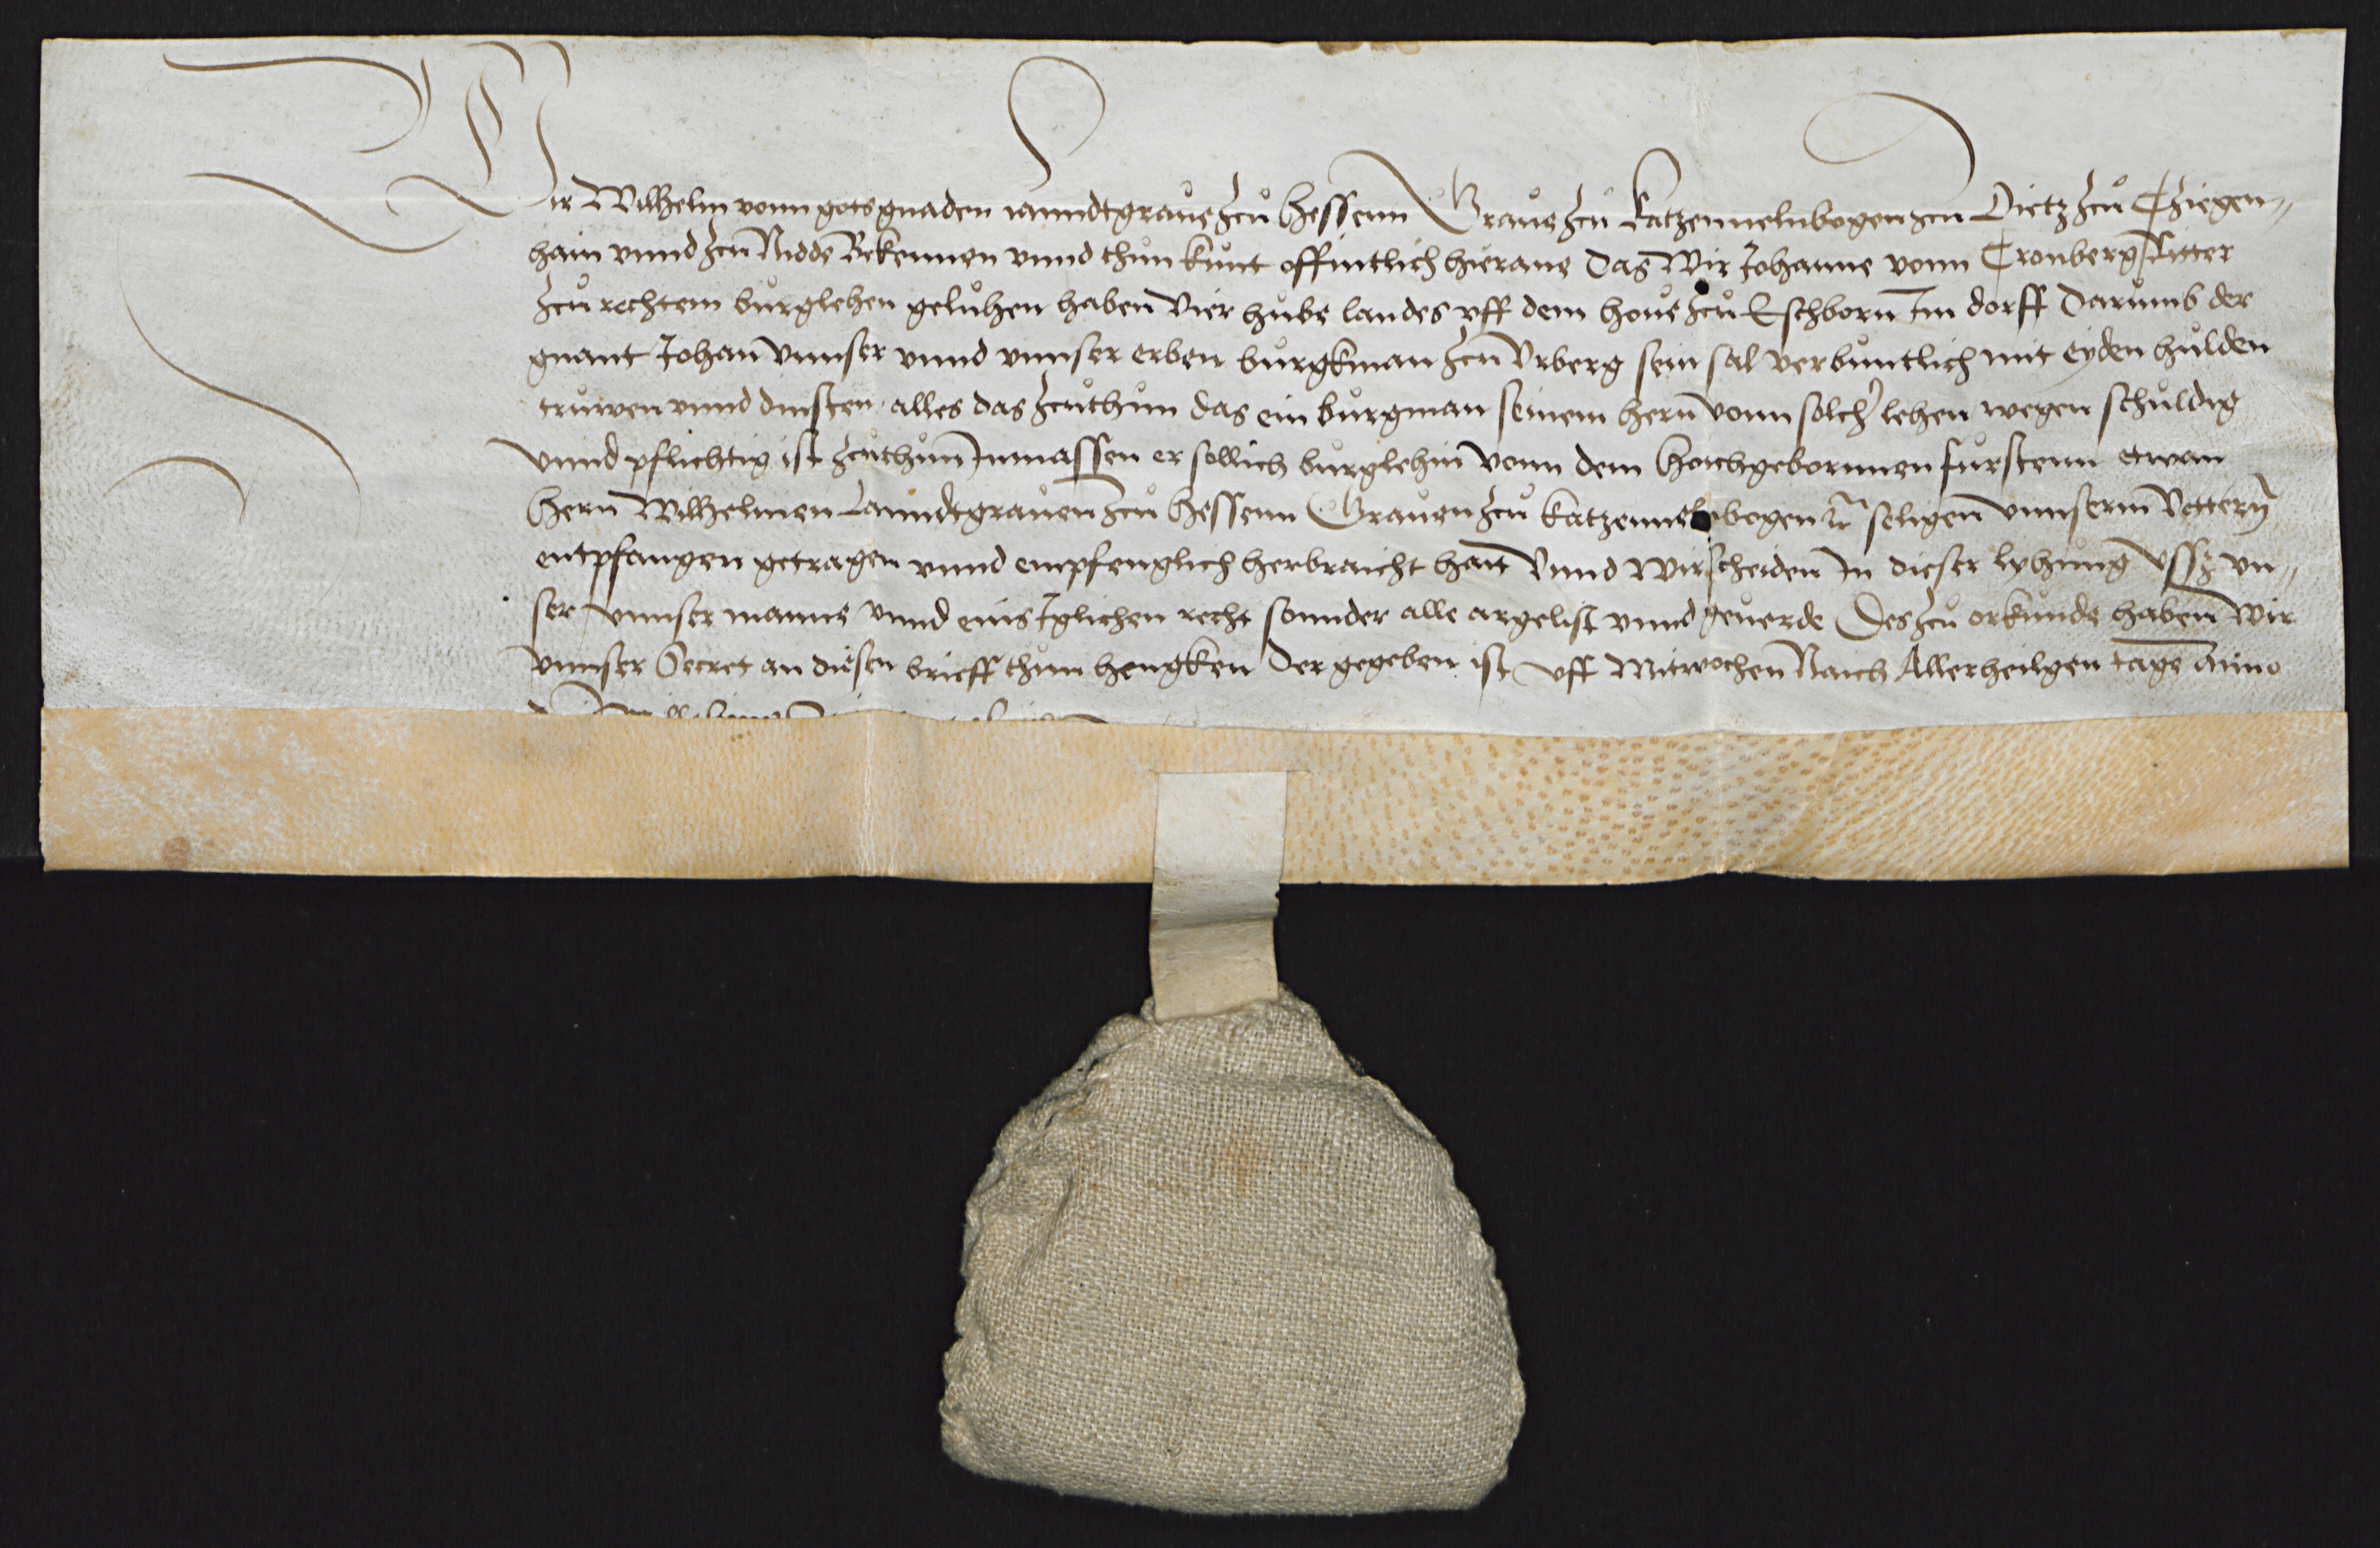 Wir Wilhelm vonn gots gnaden lanndtgraue zcu Hessenn Graue zcu Katzennelnbogen zcu Dietz zcu Cziegen-
hain vnnd zcu Nidde Bekennen vnnd thun kunt offintlich hierane Das Wir Johanne vonn Cronberg Ritter
zcu rechtem burglehen geluhen haben Vier hube landes vff dem houe zcu Eschborn Im dorff Darumb der
gnant Johan Vnnser vnnd vnnser erben burgkman zcu Vrberg sein sal verbuntlich mit eyden hulden
truwen vnnd dinsten alles das zcuthun das ein burgman seinem hern vonn solcher lehen wegen schuldig
vnnd pflichtig ist zcuthun Inmassen er sollich burglehin vonn dem Hochgebornnen furstenn etwan
Hern Wilhelmen Lanndtgrauen zcu Hessenn Grauen zcu Katzennelnbogen seligen vnnserm Vettern
entpfangen getragen vnnd empfenglich herbraicht hait Vnnd Wir scheiden In dieser lyhung vssz vn-
ser vnnser manne vnnd eins Iglichen recht sonnder alle argelist vnnd geuerde Des zcu orkunde haben Wir
vnnser Secret an diesen brieff thun hengken Der gegeben ist vff Mitwochen Naich Allerheilgen tage Anno